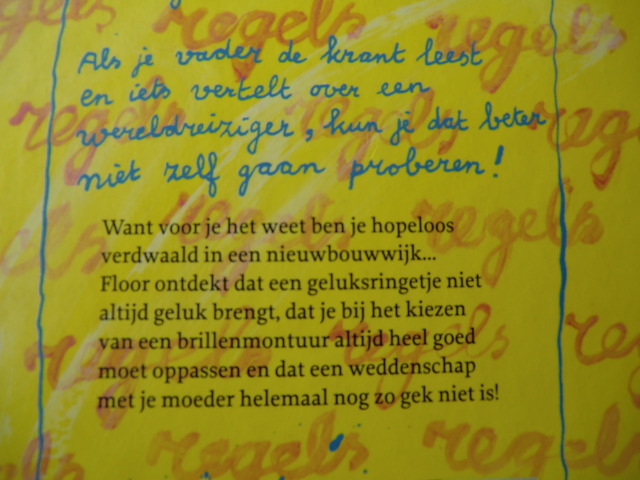 regels regels regels
Als je vader de krant leest
en iets vertelt over een
regels regels regels
wereldreiziger, kun je dat beter
niet zelf gaan proberen!
Want voor je het weet ben je hopeloos
regels regels
verdwaald in een nieuwbouwwijk...
Floor ontdekt dat een geluksringetje niet
altijd geluk brengt, dat je bij het kiezen
van een brillenmontuur altijd heel goed
regels regels
moet oppassen en dat een weddenschap
met je moeder helemaal nog zo gek niet is!
regels regels